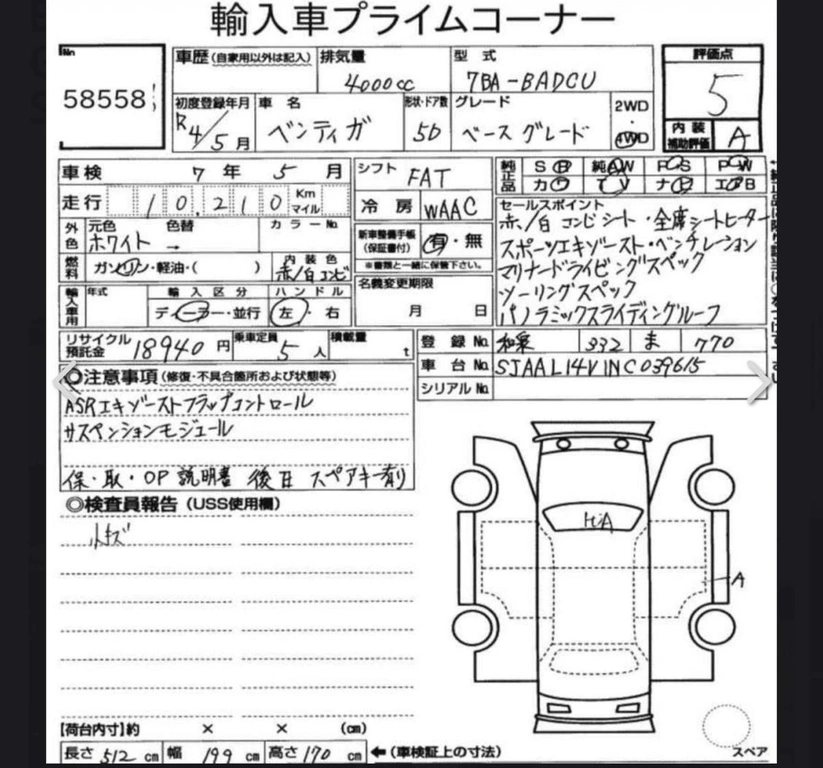 輸入車プライムコーナー
No.
58558
車歴 (自家用以外は記入) 排気量 4000cc 型式 7BA-BADCU
評価点 5
内装補助評価 A
初度登録年月 R4/5月 車名 ベンティガ 形状・ドア数 5D グレード ベースグレード 2WD 4WD
車検 7年5月
シフト FAT
純正品 SR 純AW PS PW
カ TV ナビ エアB
走行 10,210 Km マイル
冷房 WAAC
外色 元色 ホワイト 色替 → カラーNo.
新車整備手帳 (保証書付) 有・無
※書類と一緒に保管下さい。
燃料 ガソリン・軽油・( ) 内装色 赤/白コンビ
名義変更期限 月 日
輸入車用 年式 輸入区分 ディーラー・並行 ハンドル 左・右
セールスポイント
赤/白コンビシート・全席シートヒーター
スポーツエキゾースト・ベンチレーション
マリナードライビングスペック
ツーリングスペック
パノラミックスライディングルーフ
リサイクル預託金 18940円 乗車定員 5人 積載量 t
登録No. 和泉 332 ま 770
車台No. SJAAL14V1NC039615
シリアルNo.
◎注意事項 (修復・不具合箇所および状態等)
ASRエキゾーストフラップコントロール
サスペンションモジュール
保・取・OP説明書 後日 スペアキー有り
◎検査員報告 (USS使用欄)
小キズ
A
【荷台内寸】約 × × (cm)
長さ 512 cm 幅 199 cm 高さ 170 cm ←(車検証上の寸法)
スペア